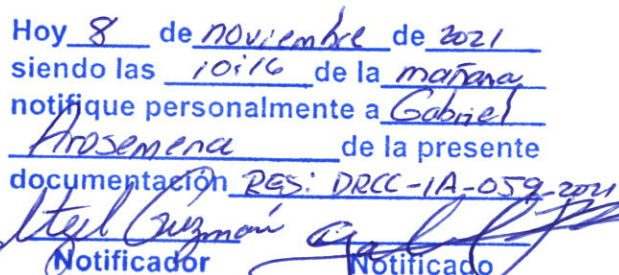 Hoy 8 de noviembre de 2021
siendo las 10:16 de la mañana
notifique personalmente a Gabriel
Arosemena de la presente
documentación RES: DRCC-IA-059-2021
Itzel Guzmán
Notificador Notificado